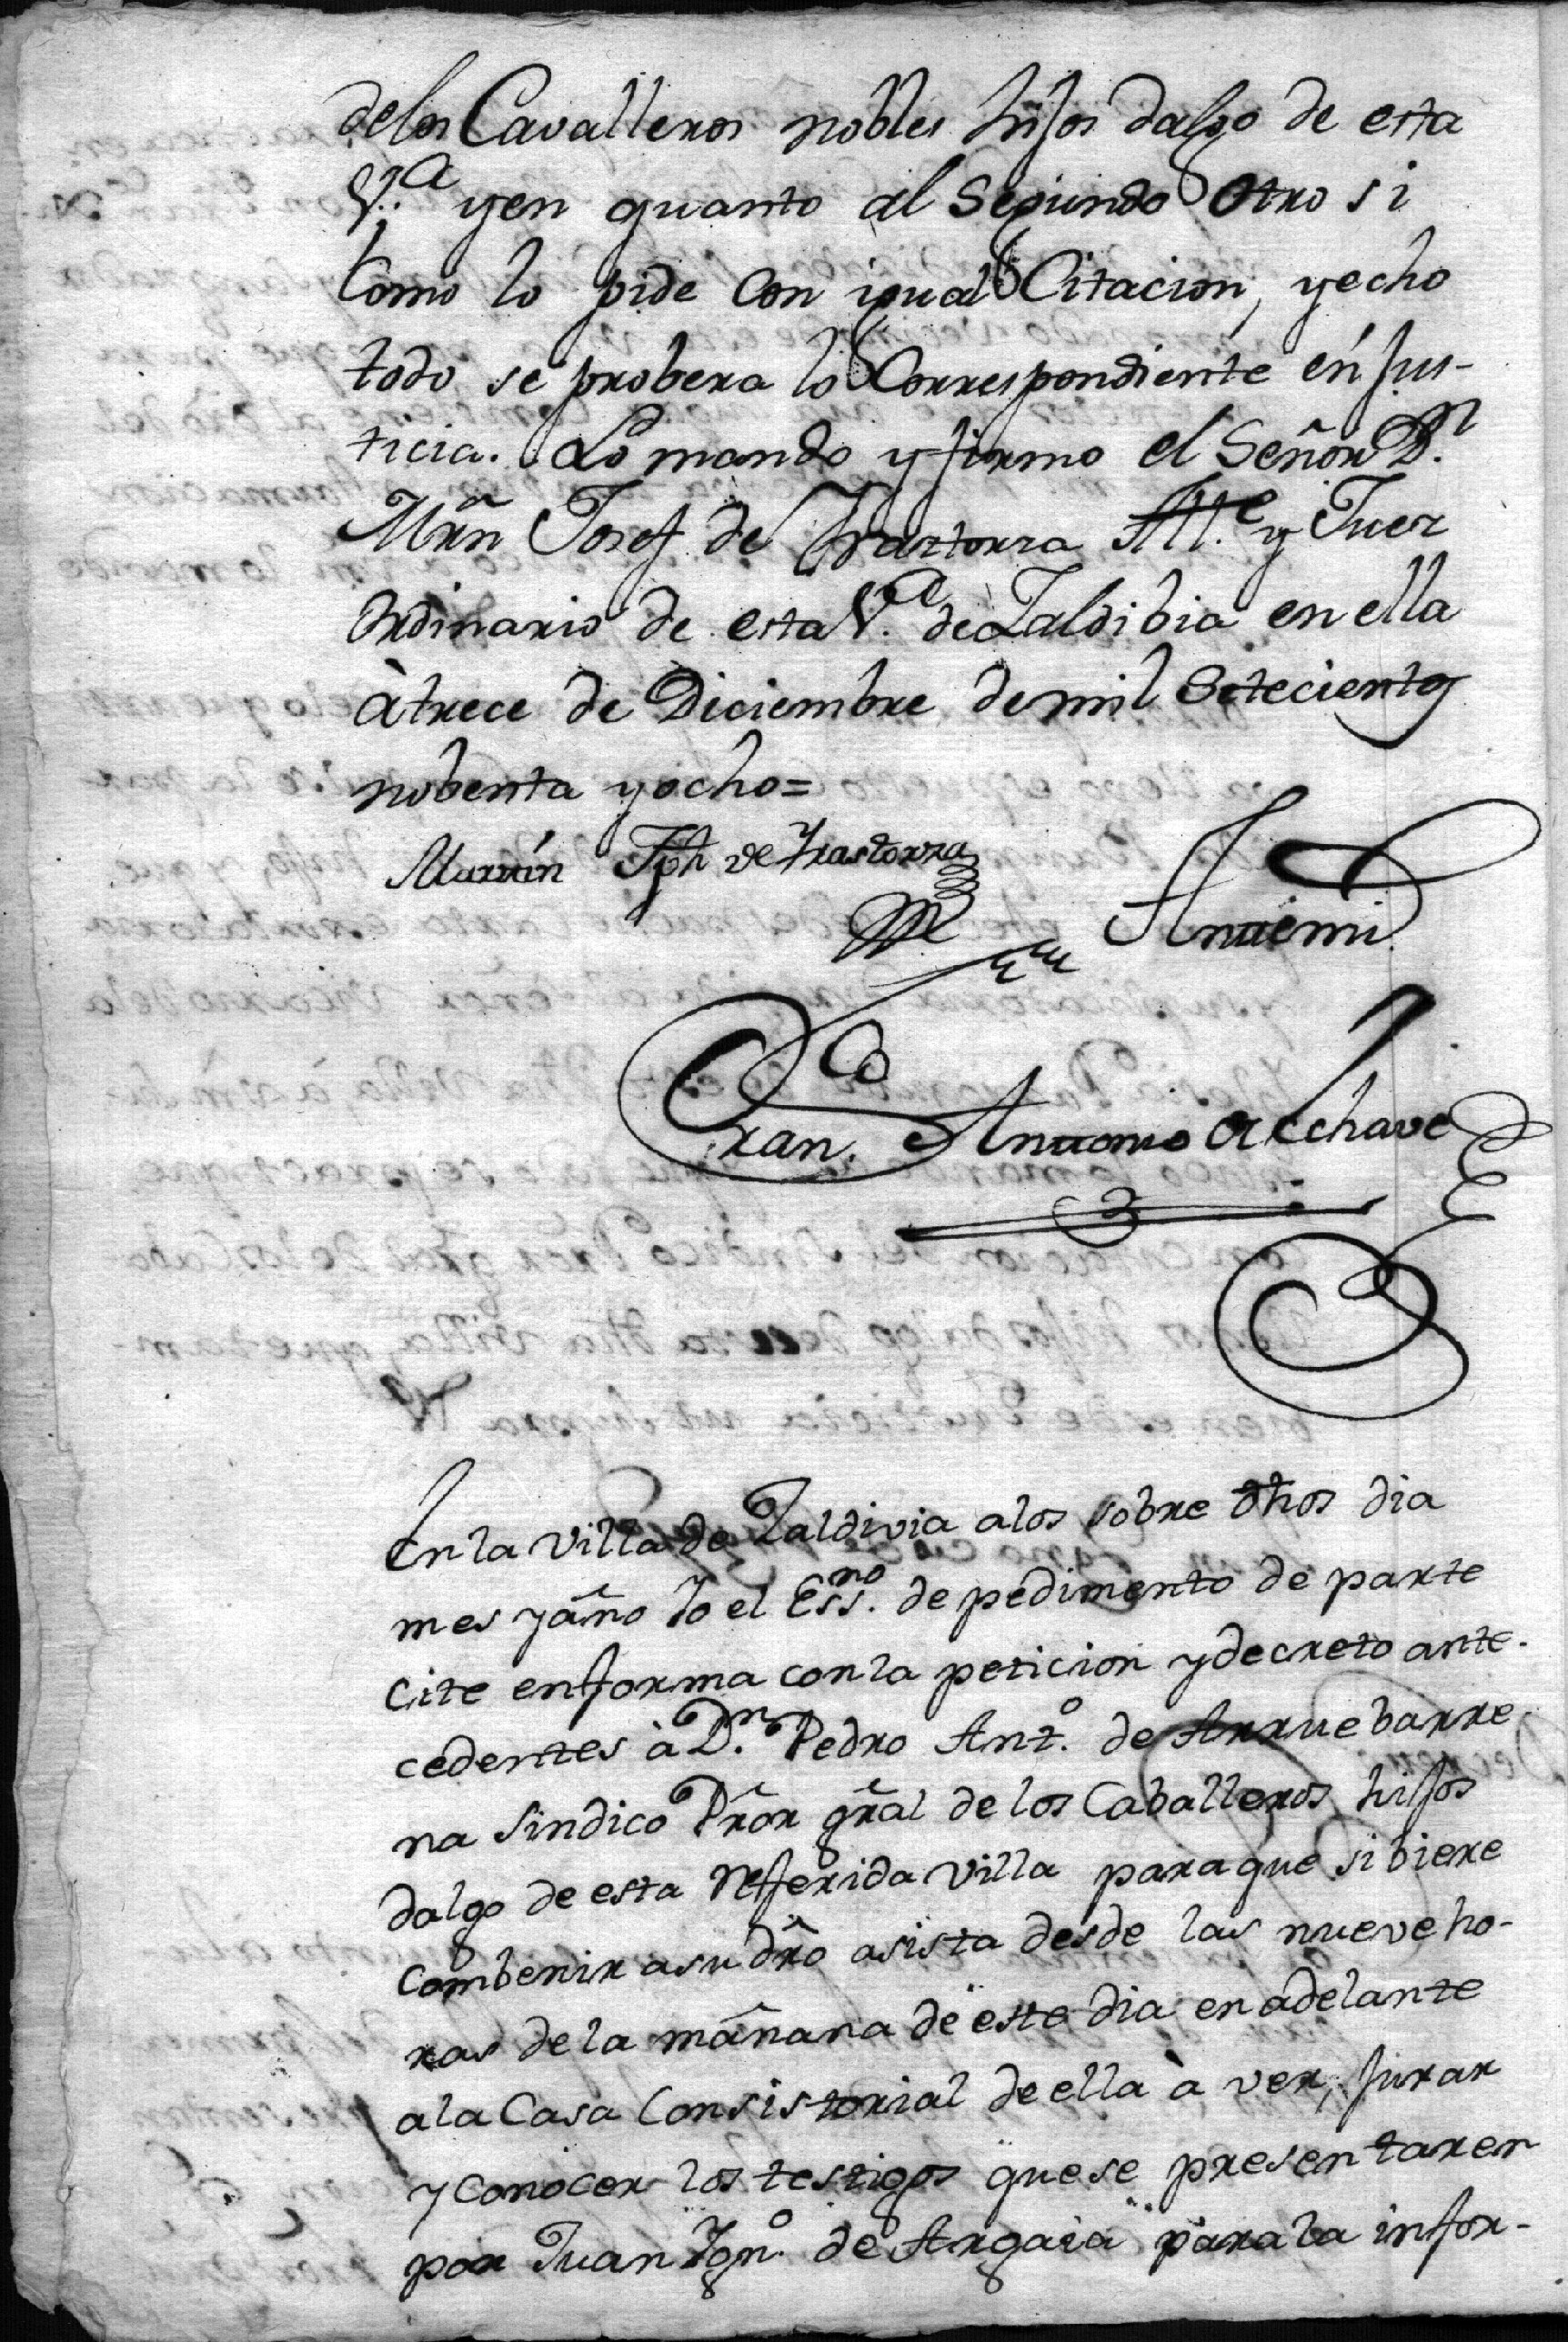 delos Cavalleros nobles hijos dalgo de esta
V.ª yen quanto al Segundo Otro si
Como lo pide Con igual Citacion, yecho
todo se probera lo Correspondiente en jus-
ticia. Lo mando y firmo el Señor D.n
Mrñ Josef de Yraztorza Al.e y Juez
Ordinario de esta V.ª de Zaldibia en ella
à trece de Diciembre de mil Setecientos
nobenta yocho=
Martin Jph de Yrastorza
Antemi
Fran.co Antonio de Echave
En la Villa de Zaldivia a los sobre dhos dia
mes y año Yo el Ess.no de pedimento de parte
cite enforma con la peticion y decreto ante-
cedentes à D.n Pedro Ant.o de Arruebarre
na Sindico Pror gral de los Caballeros hijos
dalgo de esta refferida Villa para que si biere
combenir a su dro asista desde las nueve ho-
ras de la mañana de este dia en adelante
a la Casa Consistorial de ella à ver, jurar
y conocer los testigos que se presentaren
por Juan Ygn.o de Argaia para la infor-